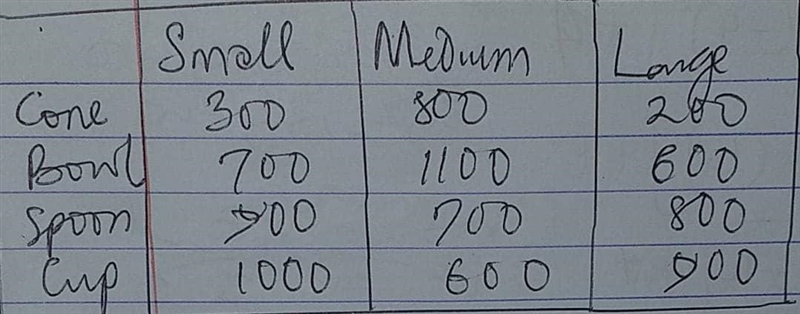 Small Medium Large
Cone 300 800 200
Bowl 700 1100 600
Spoon 900 700 800
Cup 1000 600 900